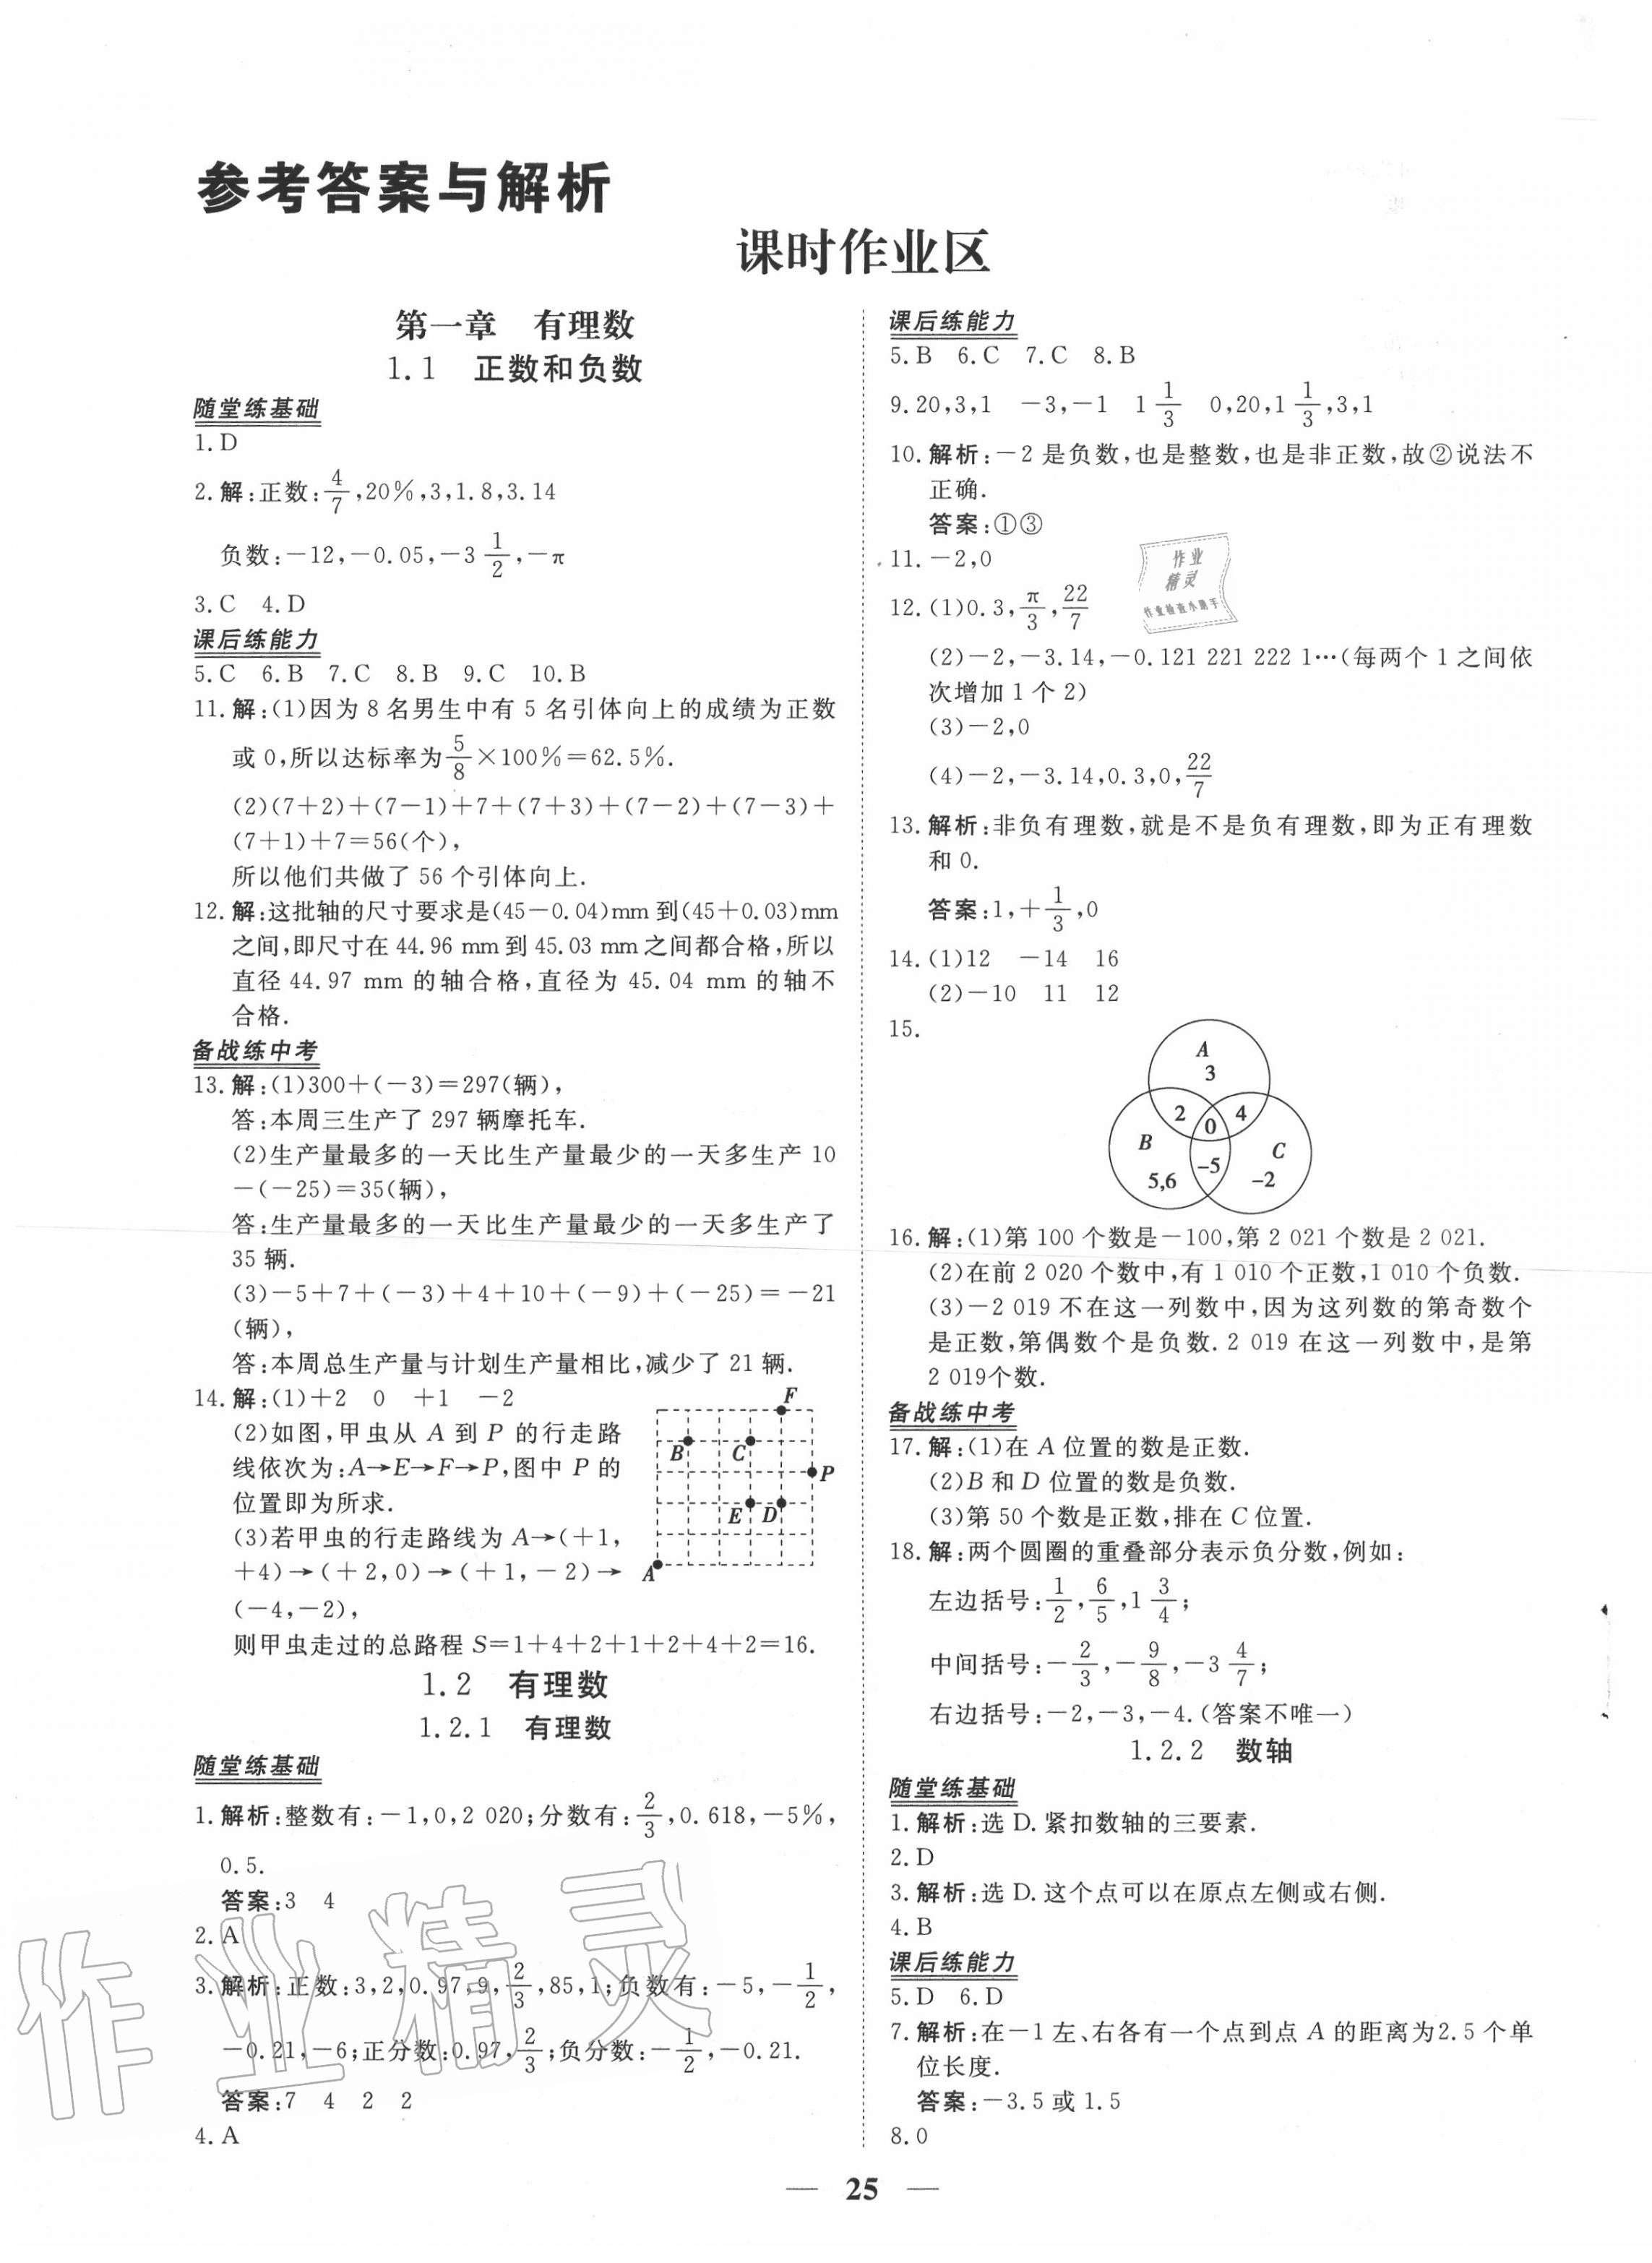 参考答案与解析
课时作业区
第一章　有理数
1.1　正数和负数
随堂练基础
1.D
2.解:正数:4/7,20%,3,1.8,3.14
负数:-12,-0.05,-3 1/2,-π
3.C　4.D
课后练能力
5.C　6.B　7.C　8.B　9.C　10.B
11.解:(1)因为 8 名男生中有 5 名引体向上的成绩为正数
或 0,所以达标率为5/8×100%=62.5%.
(2)(7+2)+(7-1)+7+(7+3)+(7-2)+(7-3)+
(7+1)+7=56(个),
所以他们共做了 56 个引体向上.
12.解:这批轴的尺寸要求是(45-0.04)mm 到(45+0.03)mm
之间,即尺寸在 44.96 mm 到 45.03 mm 之间都合格,所以
直径 44.97 mm 的轴合格,直径为 45.04 mm 的轴不
合格.
备战练中考
13.解:(1)300+(-3)=297(辆),
答:本周三生产了 297 辆摩托车.
(2)生产量最多的一天比生产量最少的一天多生产 10
-(-25)=35(辆),
答:生产量最多的一天比生产量最少的一天多生产了
35 辆.
(3)-5+7+(-3)+4+10+(-9)+(-25)=-21
(辆),
答:本周总生产量与计划生产量相比,减少了 21 辆.
14.解:(1)+2　0　+1　-2
(2)如图,甲虫从 A 到 P 的行走路
线依次为:A→E→F→P,图中 P 的
位置即为所求.
(3)若甲虫的行走路线为 A→(+1,
+4)→(+2,0)→(+1,-2)→
(-4,-2),
则甲虫走过的总路程 S=1+4+2+1+2+4+2=16.
F
B
C
P
E
D
A
1.2　有理数
1.2.1　有理数
随堂练基础
1.解析:整数有:-1,0,2 020;分数有:2/3,0.618,-5%,
0.5.
答案:3　4
2.A
3.解析:正数:3,2,0.97,9,2/3,85,1;负数有:-5,-1/2,
-0.21,-6;正分数:0.97,2/3;负分数:-1/2,-0.21.
答案:7　4　2　2
4.A
课后练能力
5.B　6.C　7.C　8.B
9.20,3,1　-3,-1　1 1/3　0,20,1 1/3,3,1
10.解析:-2 是负数,也是整数,也是非正数,故②说法不
正确.
答案:①③
11.-2,0
12.(1)0.3,π/3,22/7
(2)-2,-3.14,-0.121 221 222 1…(每两个 1 之间依
次增加 1 个 2)
(3)-2,0
(4)-2,-3.14,0.3,0,22/7
13.解析:非负有理数,就是不是负有理数,即为正有理数
和 0.
答案:1,+1/3,0
14.(1)12　-14　16
(2)-10　11　12
15.
A
3
2
0
4
B
-5
C
5,6
-2
16.解:(1)第 100 个数是-100,第 2 021 个数是 2 021.
(2)在前 2 020 个数中,有 1 010 个正数,1 010 个负数.
(3)-2 019 不在这一列数中,因为这列数的第奇数个
是正数,第偶数个是负数.2 019 在这一列数中,是第
2 019个数.
备战练中考
17.解:(1)在 A 位置的数是正数.
(2)B 和 D 位置的数是负数.
(3)第 50 个数是正数,排在 C 位置.
18.解:两个圆圈的重叠部分表示负分数,例如:
左边括号:1/2,6/5,1 3/4;
中间括号:-2/3,-9/8,-3 4/7;
右边括号:-2,-3,-4.(答案不唯一)
1.2.2　数轴
随堂练基础
1.解析:选 D.紧扣数轴的三要素.
2.D
3.解析:选 D.这个点可以在原点左侧或右侧.
4.B
课后练能力
5.D　6.D
7.解析:在-1 左、右各有一个点到点 A 的距离为2.5 个单
位长度.
答案:-3.5 或 1.5
8.0
作业
精灵
作业检查小助手
作业精灵
— 25 —